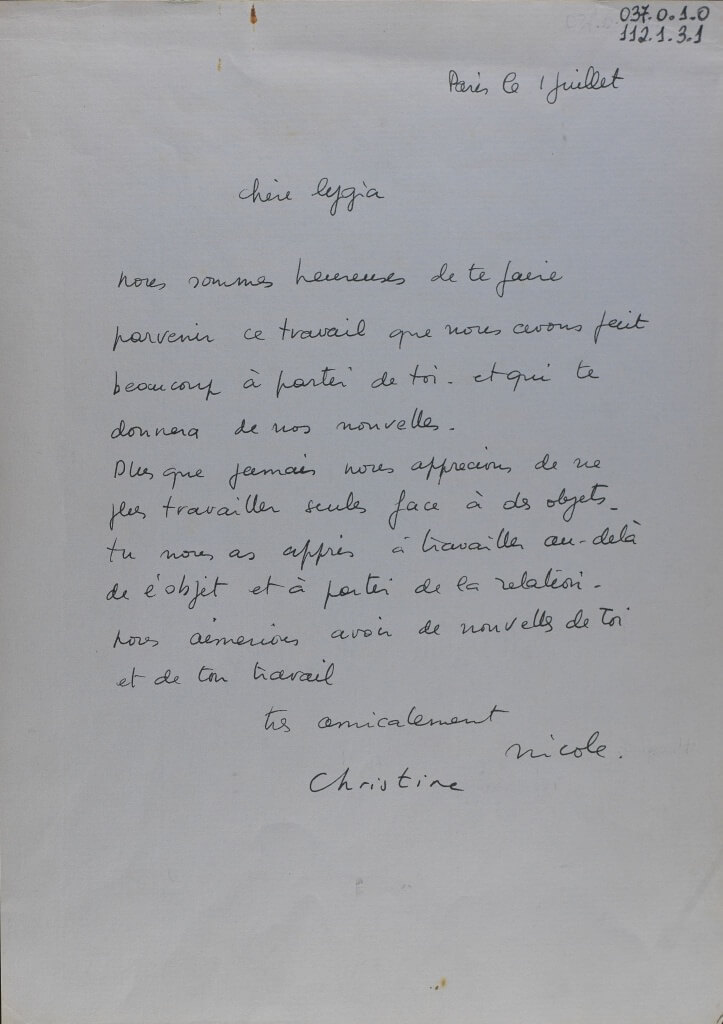 037.0.1.0
112.1.3.1
Paris le 1 Juillet
Chère Lygia
nous sommes heureuses de te faire
parvenir ce travail que nous avons fait
beaucoup à partir de toi. et qui te
donnera de nos nouvelles.
Plus que jamais nous apprecions de ne
plus travailler seules face à des objets.
tu nous as appris à travailler au-delà
de l'objet et à partir de la relation.
nous aimerions avoir de nouvelles de toi
et de ton travail
très amicalement
nicole.
Christine